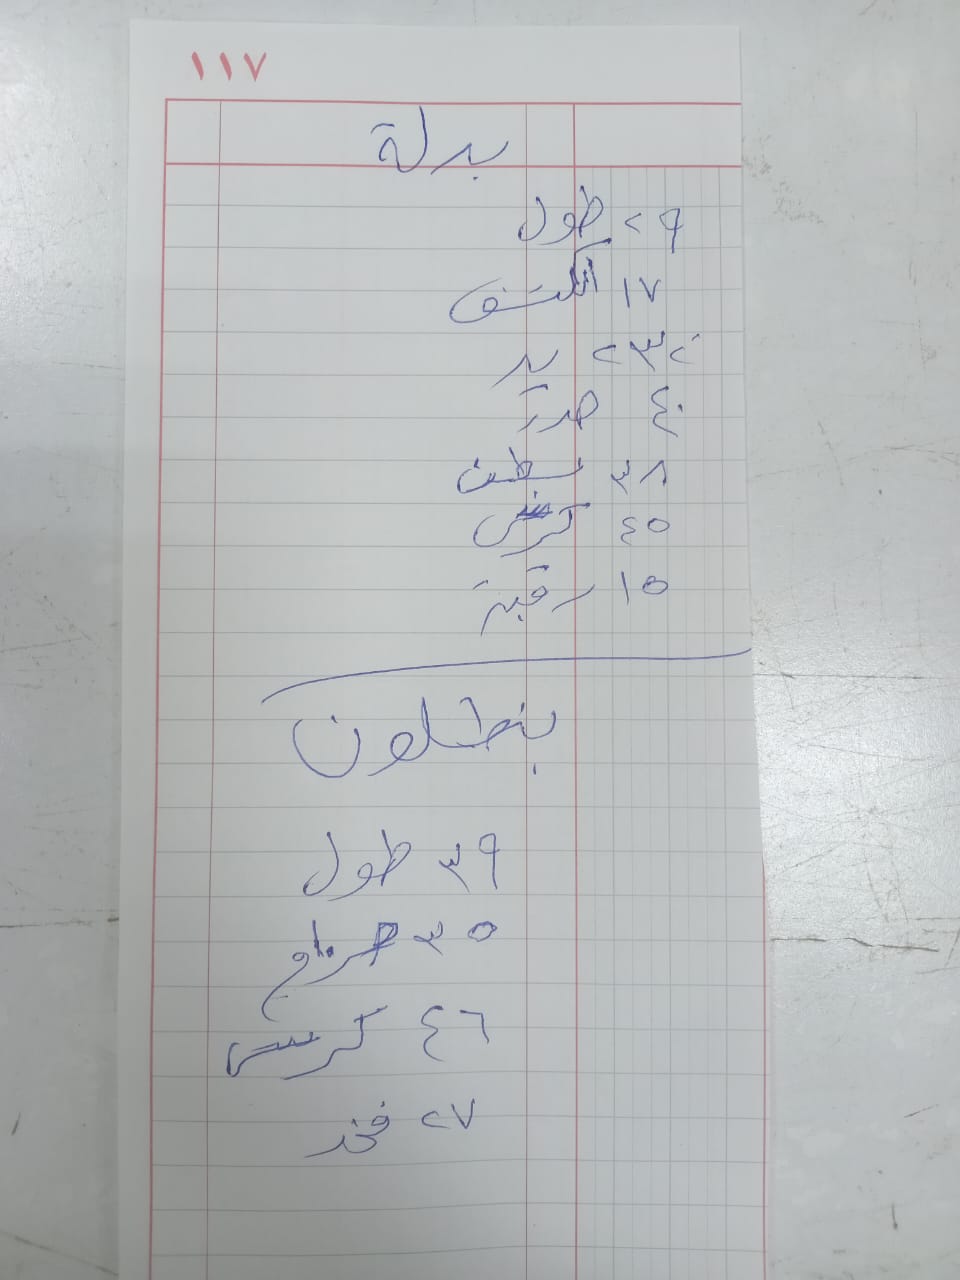 ١١٧
بدلة
٢٩ طول
١٧ كتف
يد
٤٠ صدر
٣٨ بطن
٤٥ كرش
١٥ رقبة
بنطلون
٣٩ طول
٣٥ حزام
٤٦ كرسي
٢٧ فخد